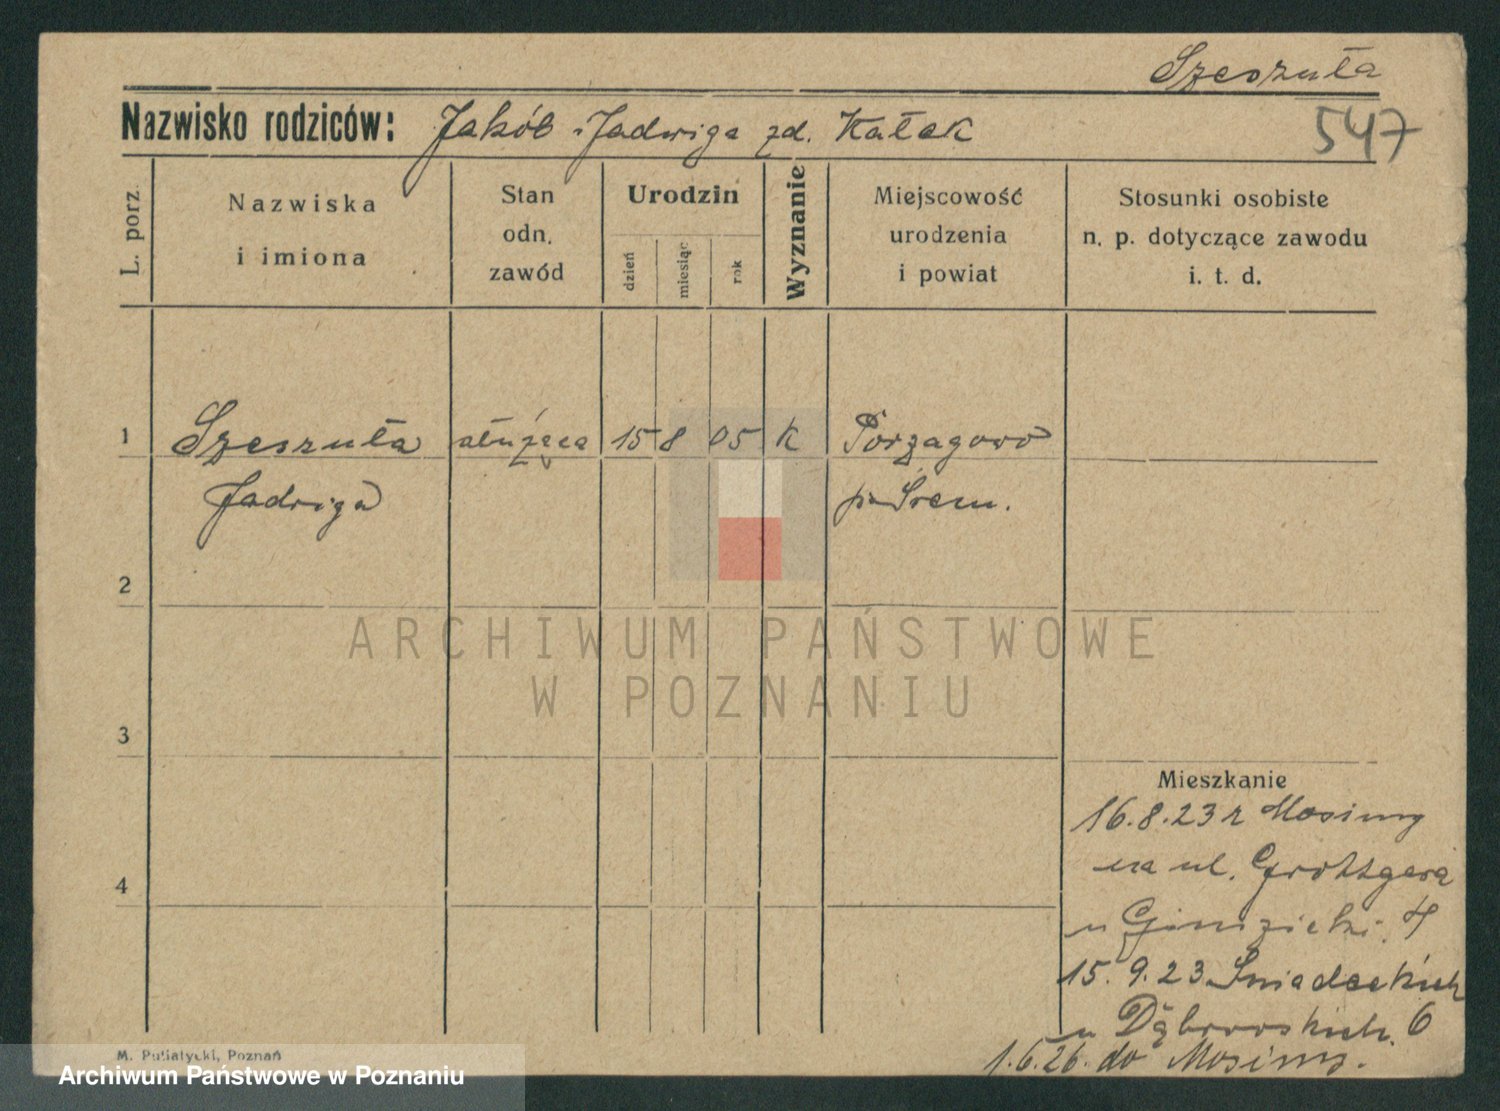 Szeszuła
Nazwisko rodziców: Jakób i Jadwiga zd. Kałek
547
L. porz.
Nazwiska
i imiona
Stan
odn.
zawód
Urodzin
dzień
miesiąc
rok
Wyznanie
Miejscowość
urodzenia
i powiat
Stosunki osobiste
n. p. dotyczące zawodu
i. t. d.
1 Szeszuła służąca 15 8 05 K Porzagowo
Jadwiga Śrem.
2
ARCHIWUM PAŃSTWOWE
W POZNANIU
3
Mieszkanie
16.8.23 z Mosiny
4
na ul. Grottgera
u 4
15.9.23 Śniadeckich
u Dąbrowskich 6
1.6.26. do Mosiny.
M. Putiatycki, Poznań
Archiwum Państwowe w Poznaniu